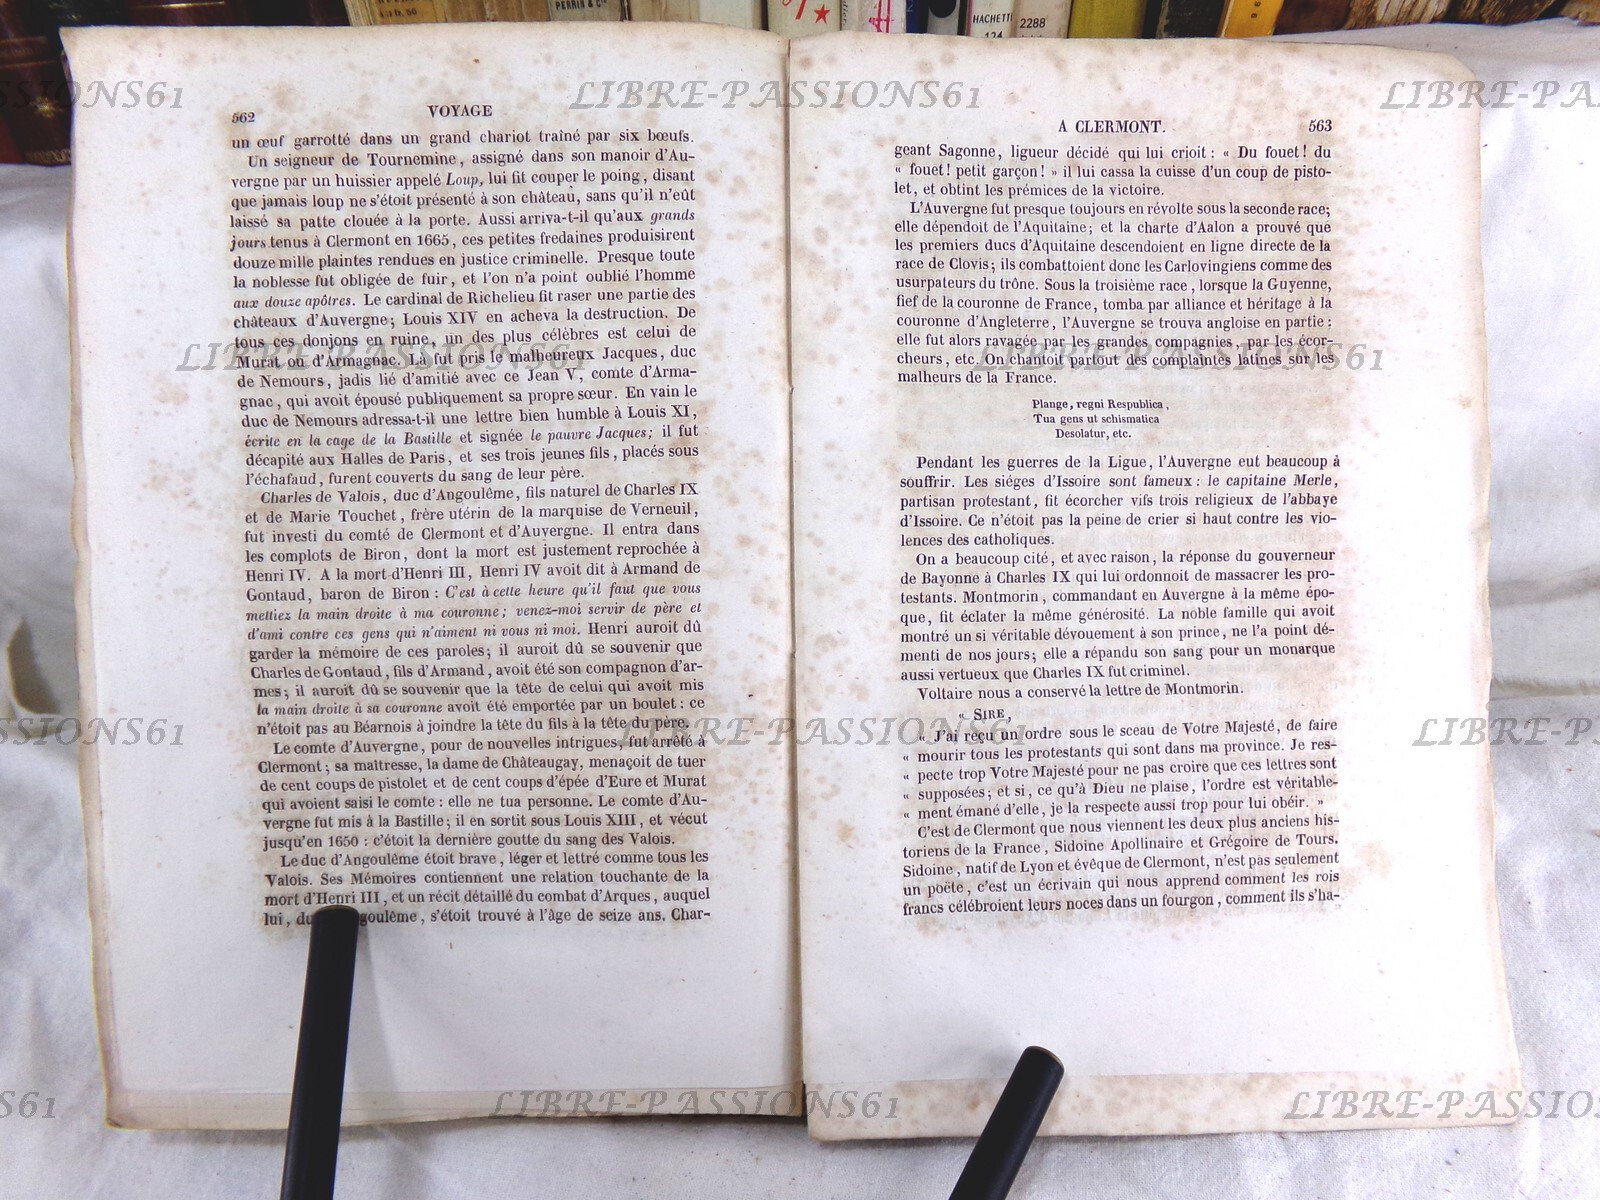 à 1 fr. 50
PERRIN & Cie
HACHETTE
124
2288
LIBRE-PASSIONS61
562
VOYAGE
un œuf garrotté dans un grand chariot traîné par six bœufs.
Un seigneur de Tournemine, assigné dans son manoir d'Au-
vergne par un huissier appelé Loup, lui fit couper le poing, disant
que jamais loup ne s'étoit présenté à son château, sans qu'il n'eût
laissé sa patte clouée à la porte. Aussi arriva-t-il qu'aux grands
jours tenus à Clermont en 1665, ces petites fredaines produisirent
douze mille plaintes rendues en justice criminelle. Presque toute
la noblesse fut obligée de fuir, et l'on n'a point oublié l'homme
aux douze apôtres. Le cardinal de Richelieu fit raser une partie des
châteaux d'Auvergne; Louis XIV en acheva la destruction. De
tous ces donjons en ruine, un des plus célèbres est celui de
Murat ou d'Armagnac. Là fut pris le malheureux Jacques, duc
de Nemours, jadis lié d'amitié avec ce Jean V, comte d'Arma-
gnac, qui avoit épousé publiquement sa propre sœur. En vain le
duc de Nemours adressa-t-il une lettre bien humble à Louis XI,
écrite en la cage de la Bastille et signée le pauvre Jacques; il fut
décapité aux Halles de Paris, et ses trois jeunes fils, placés sous
l'échafaud, furent couverts du sang de leur père.
Charles de Valois, duc d'Angoulême, fils naturel de Charles IX
et de Marie Touchet, frère utérin de la marquise de Verneuil,
fut investi du comté de Clermont et d'Auvergne. Il entra dans
les complots de Biron, dont la mort est justement reprochée à
Henri IV. A la mort d'Henri III, Henri IV avoit dit à Armand de
Gontaud, baron de Biron : C'est à cette heure qu'il faut que vous
mettiez la main droite à ma couronne; venez-moi servir de père et
d'ami contre ces gens qui n'aiment ni vous ni moi. Henri auroit dû
garder la mémoire de ces paroles; il auroit dû se souvenir que
Charles de Gontaud, fils d'Armand, avoit été son compagnon d'ar-
mes; il auroit dû se souvenir que la tête de celui qui avoit mis
la main droite à sa couronne avoit été emportée par un boulet : ce
n'étoit pas au Béarnois à joindre la tête du fils à la tête du père.
Le comte d'Auvergne, pour de nouvelles intrigues, fut arrêté à
Clermont; sa maîtresse, la dame de Châteaugay, menaçoit de tuer
de cent coups de pistolet et de cent coups d'épée d'Eure et Murat
qui avoient saisi le comte : elle ne tua personne. Le comte d'Au-
vergne fut mis à la Bastille; il en sortit sous Louis XIII, et vécut
jusqu'en 1650 : c'étoit la dernière goutte du sang des Valois.
Le duc d'Angoulême étoit brave, léger et lettré comme tous les
Valois. Ses Mémoires contiennent une relation touchante de la
mort d'Henri III, et un récit détaillé du combat d'Arques, auquel
lui, du goulême, s'étoit trouvé à l'âge de seize ans. Char-
A CLERMONT.
563
geant Sagonne, ligueur décidé qui lui crioit : « Du fouet! du
« fouet! petit garçon! » il lui cassa la cuisse d'un coup de pisto-
let, et obtint les prémices de la victoire.
L'Auvergne fut presque toujours en révolte sous la seconde race;
elle dépendoit de l'Aquitaine; et la charte d'Aalon a prouvé que
les premiers ducs d'Aquitaine descendoient en ligne directe de la
race de Clovis; ils combattoient donc les Carlovingiens comme des
usurpateurs du trône. Sous la troisième race, lorsque la Guyenne,
fief de la couronne de France, tomba par alliance et héritage à la
couronne d'Angleterre, l'Auvergne se trouva angloise en partie :
elle fut alors ravagée par les grandes compagnies, par les écor-
cheurs, etc. On chantoit partout des complaintes latines sur les
malheurs de la France.
Plange, regni Respublica,
Tua gens ut schismatica
Desolatur, etc.
Pendant les guerres de la Ligue, l'Auvergne eut beaucoup à
souffrir. Les siéges d'Issoire sont fameux : le capitaine Merle,
partisan protestant, fit écorcher vifs trois religieux de l'abbaye
d'Issoire. Ce n'étoit pas la peine de crier si haut contre les vio-
lences des catholiques.
On a beaucoup cité, et avec raison, la réponse du gouverneur
de Bayonne à Charles IX qui lui ordonnoit de massacrer les pro-
testants. Montmorin, commandant en Auvergne à la même épo-
que, fit éclater la même générosité. La noble famille qui avoit
montré un si véritable dévouement à son prince, ne l'a point dé-
menti de nos jours; elle a répandu son sang pour un monarque
aussi vertueux que Charles IX fut criminel.
Voltaire nous a conservé la lettre de Montmorin.
« SIRE,
« J'ai reçu un ordre sous le sceau de Votre Majesté, de faire
« mourir tous les protestants qui sont dans ma province. Je res-
« pecte trop Votre Majesté pour ne pas croire que ces lettres sont
« supposées; et si, ce qu'à Dieu ne plaise, l'ordre est véritable-
« ment émané d'elle, je la respecte aussi trop pour lui obéir. »
C'est de Clermont que nous viennent les deux plus anciens his-
toriens de la France, Sidoine Apollinaire et Grégoire de Tours.
Sidoine, natif de Lyon et évêque de Clermont, n'est pas seulement
un poëte, c'est un écrivain qui nous apprend comment les rois
francs célébroient leurs noces dans un fourgon, comment ils s'ha-